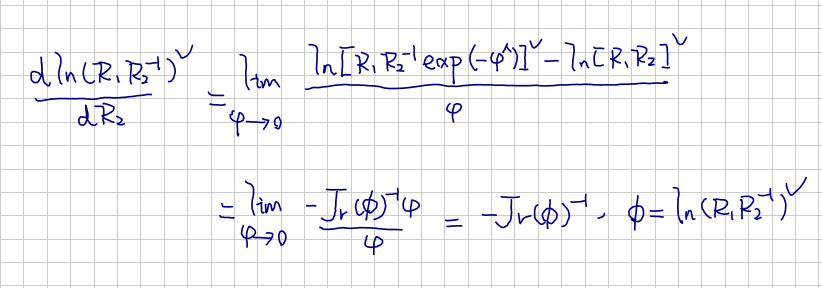 d ln(R₁R₂⁻¹)^∨ / dR₂ = lim_{φ→0} ( ln[R₁R₂⁻¹exp(-φ^∧)]^∨ - ln[R₁R₂]^∨ ) / φ
= lim_{φ→0} -J_r(ϕ)⁻¹φ / φ = -J_r(ϕ)⁻¹, ϕ = ln(R₁R₂⁻¹)^∨